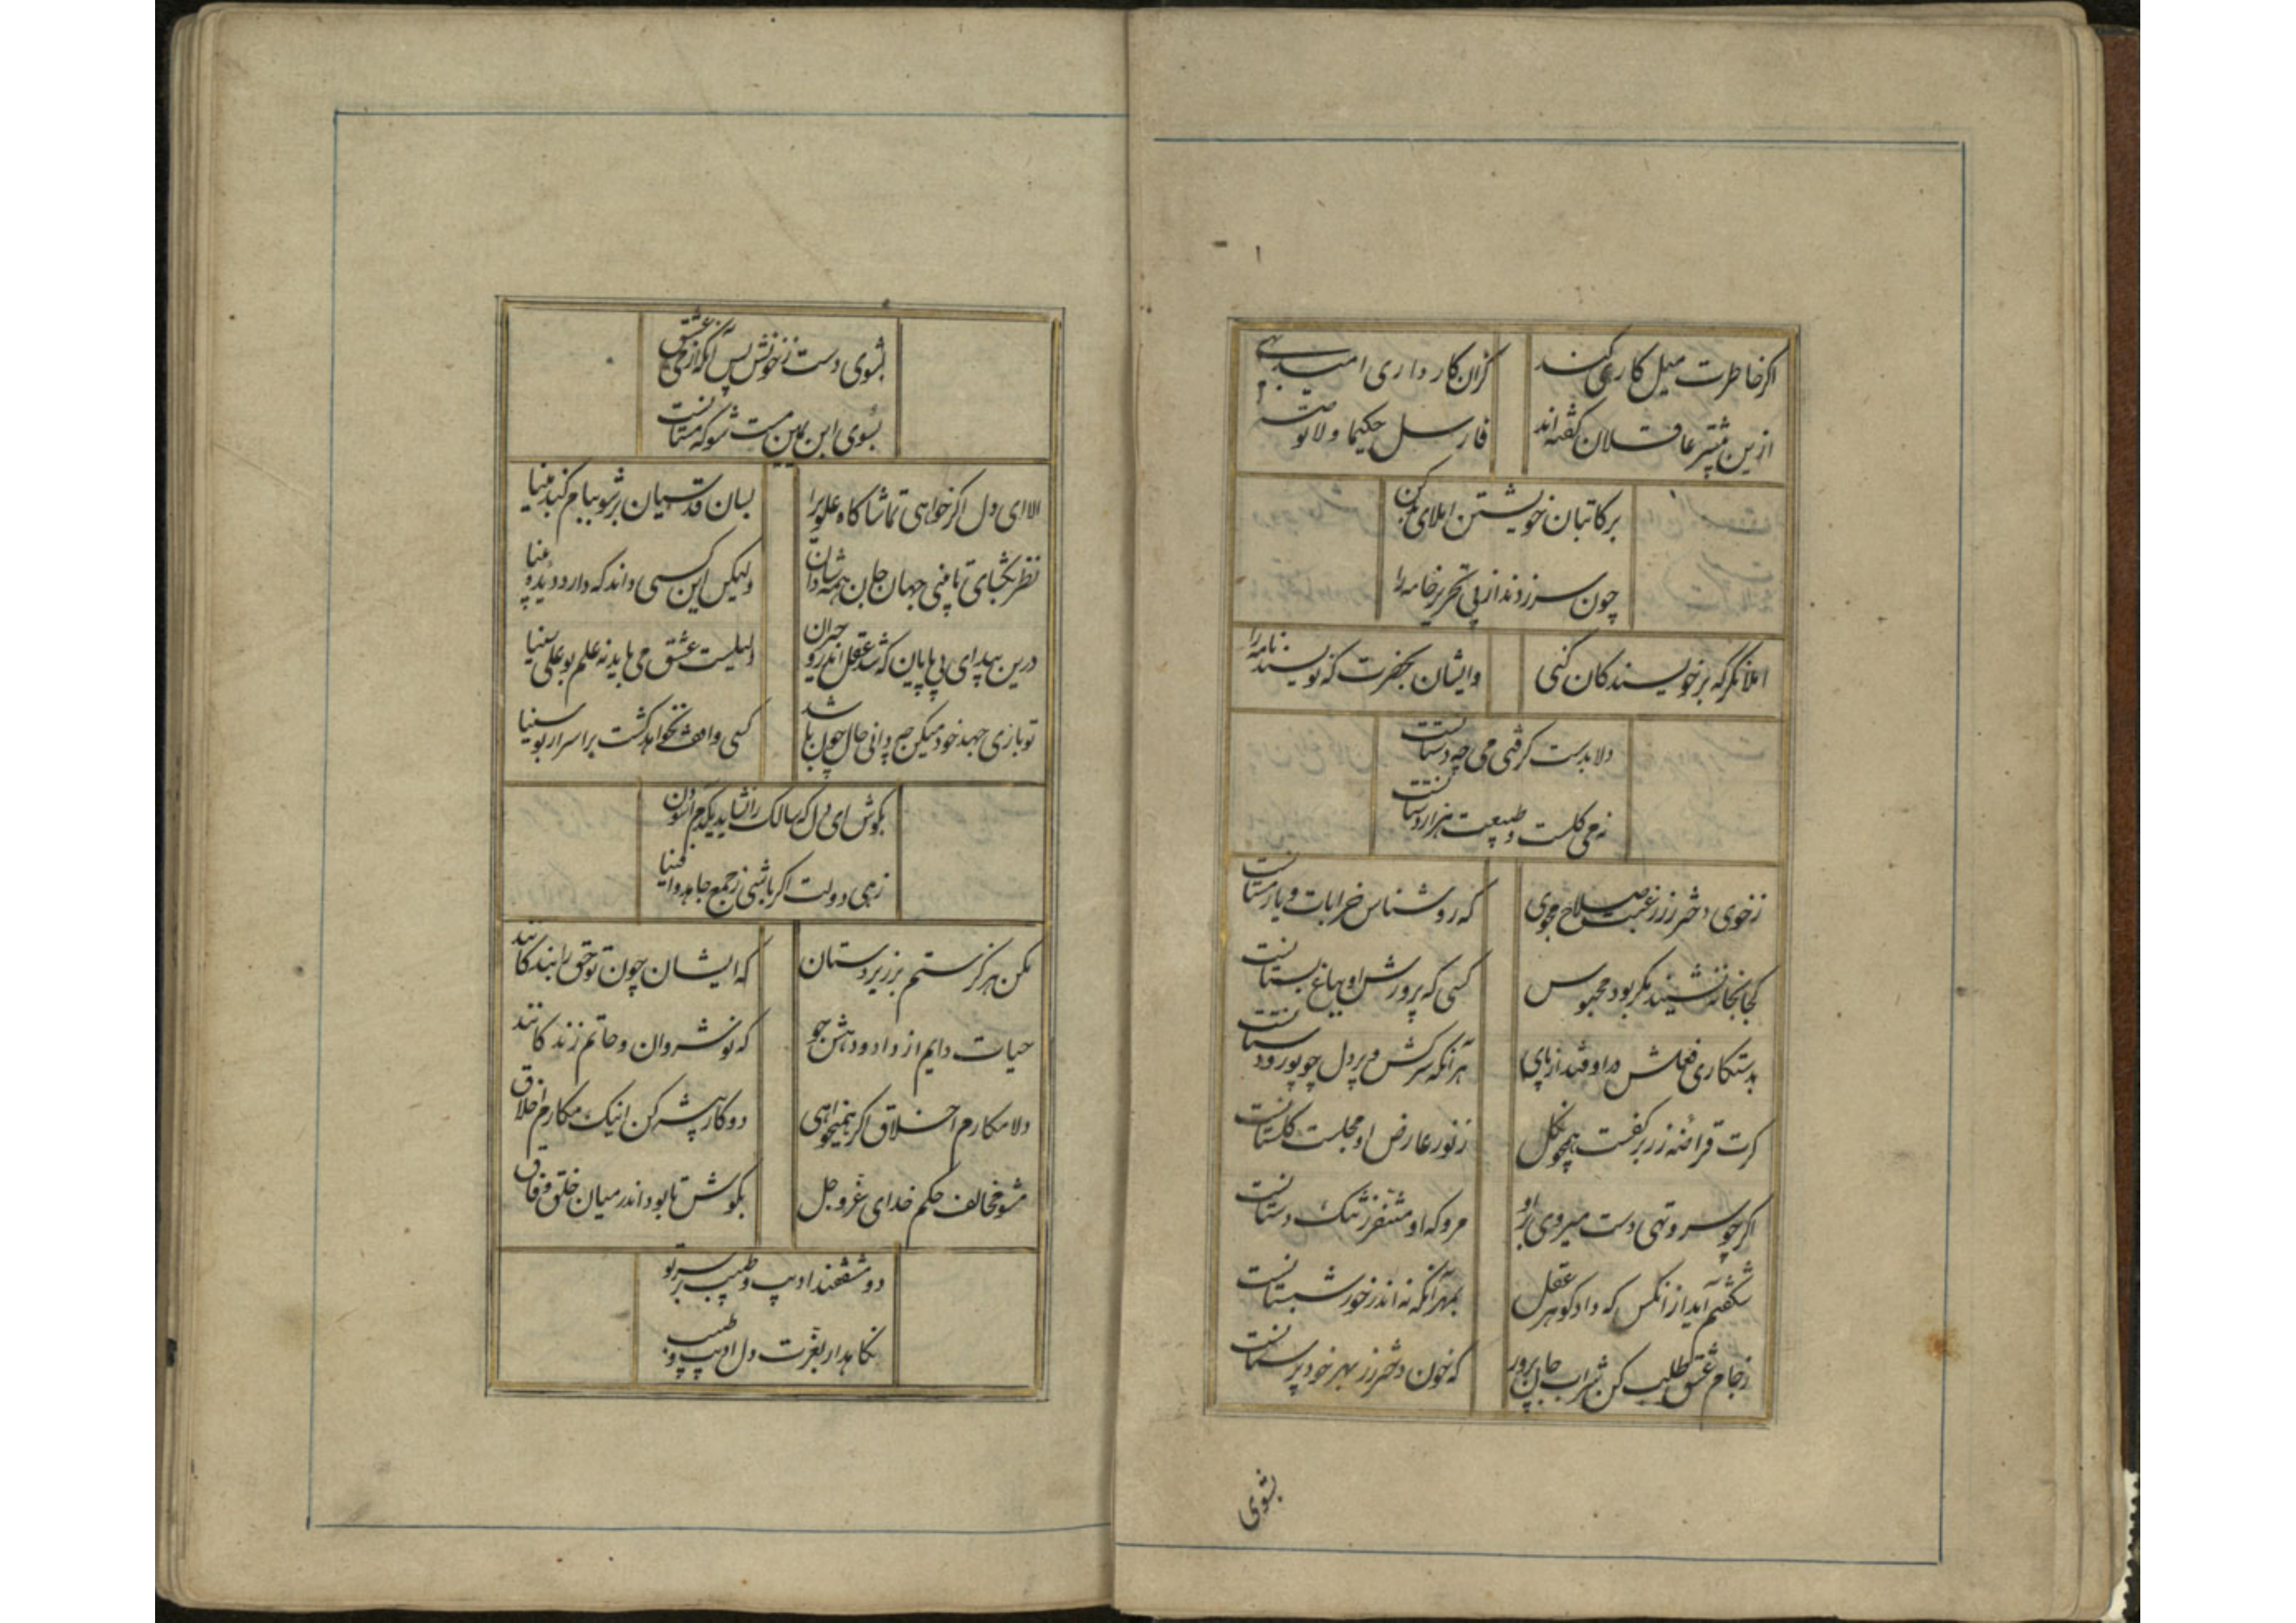 اکر خاطرت میل کاری کند کزان کار داری امید بهی
ازین پیشتر عاقلان کفته‌اند فارسل حکیما ولا توصه
بر کاتبان خویشتن املای بد مکن
چون سر زدند از پی تحریر خامه را
املا نکر که بر نویسندکان کنی وایشان بحضرت که نویسند نامه را
دلا بدست کرفتی می چه دستانست
نه می کلست و طبیعت هزار دستانست
ز خوی دختر رز رغبت صلاح مجوی که روشناس خرابات و یار مستانست
کجا بخانه نشیند مکر بود محبوس کسی که پرورش او بباغ بستانست
بدستکاری فعلش در اوفتد از پای هر آنکه سرکش و پردل چو پور دستانست
کرت قراضه زر بر کفست همچو کل ز نور عارض او مجلست کلستانست
اکر چو سرو تهی دست میروی بر او مرو که او متنفر ز تنک دستانست
شکفتم آید از انکس که داد کوهر عقل بمهر آنکه نه اندر خور شبستانست
ز جام عشق طلب کن شراب جان پرور که خون دختر رز بهر خود پرستانست
بشوی
بشوی دست ز خونش پس آنکه از می عشق
بسوی ابن یمین مست شو که مستانست
الا ای دل اکر خواهی تماشاکاه علوی را بسان قدسیان بر شو ببام کنبد مینا
نظر بکشای تا بینی جهان جان همه دانشان ولیکن این کسی داند که دارد دیده بینا
درین بیدای بی پایان که شد عقل اندرو حیران دلیلت عشق می باید نه علم بوعلی سینا
تو باری جهد خود میکن چه دانی حال چون باشد کسی واقف نخواهد کشت بر اسرار بوسینا
بکوش ای دل که سالک را نشاید یکدم آسودن
زهی دولت اکر باشی ز جمع جاهدوا فینا
مکن هرکز ستم بر زیردستان که ایشان چون تو حق را بندکانند
حیات دایم از داد و دهش جو که نوشروان و حاتم زندکانند
دلا مکارم اخلاق اکر همیخواهی دو کار پیشه کن اینک مکارم اخلاق
مشو مخالف حکم خدای عز و جل بکوش تا بود اندر میان خلق وفاق
دو مشفقند ادیب و طبیب بر سر تو
نکاهدار بعزت دل ادیب و طبیب